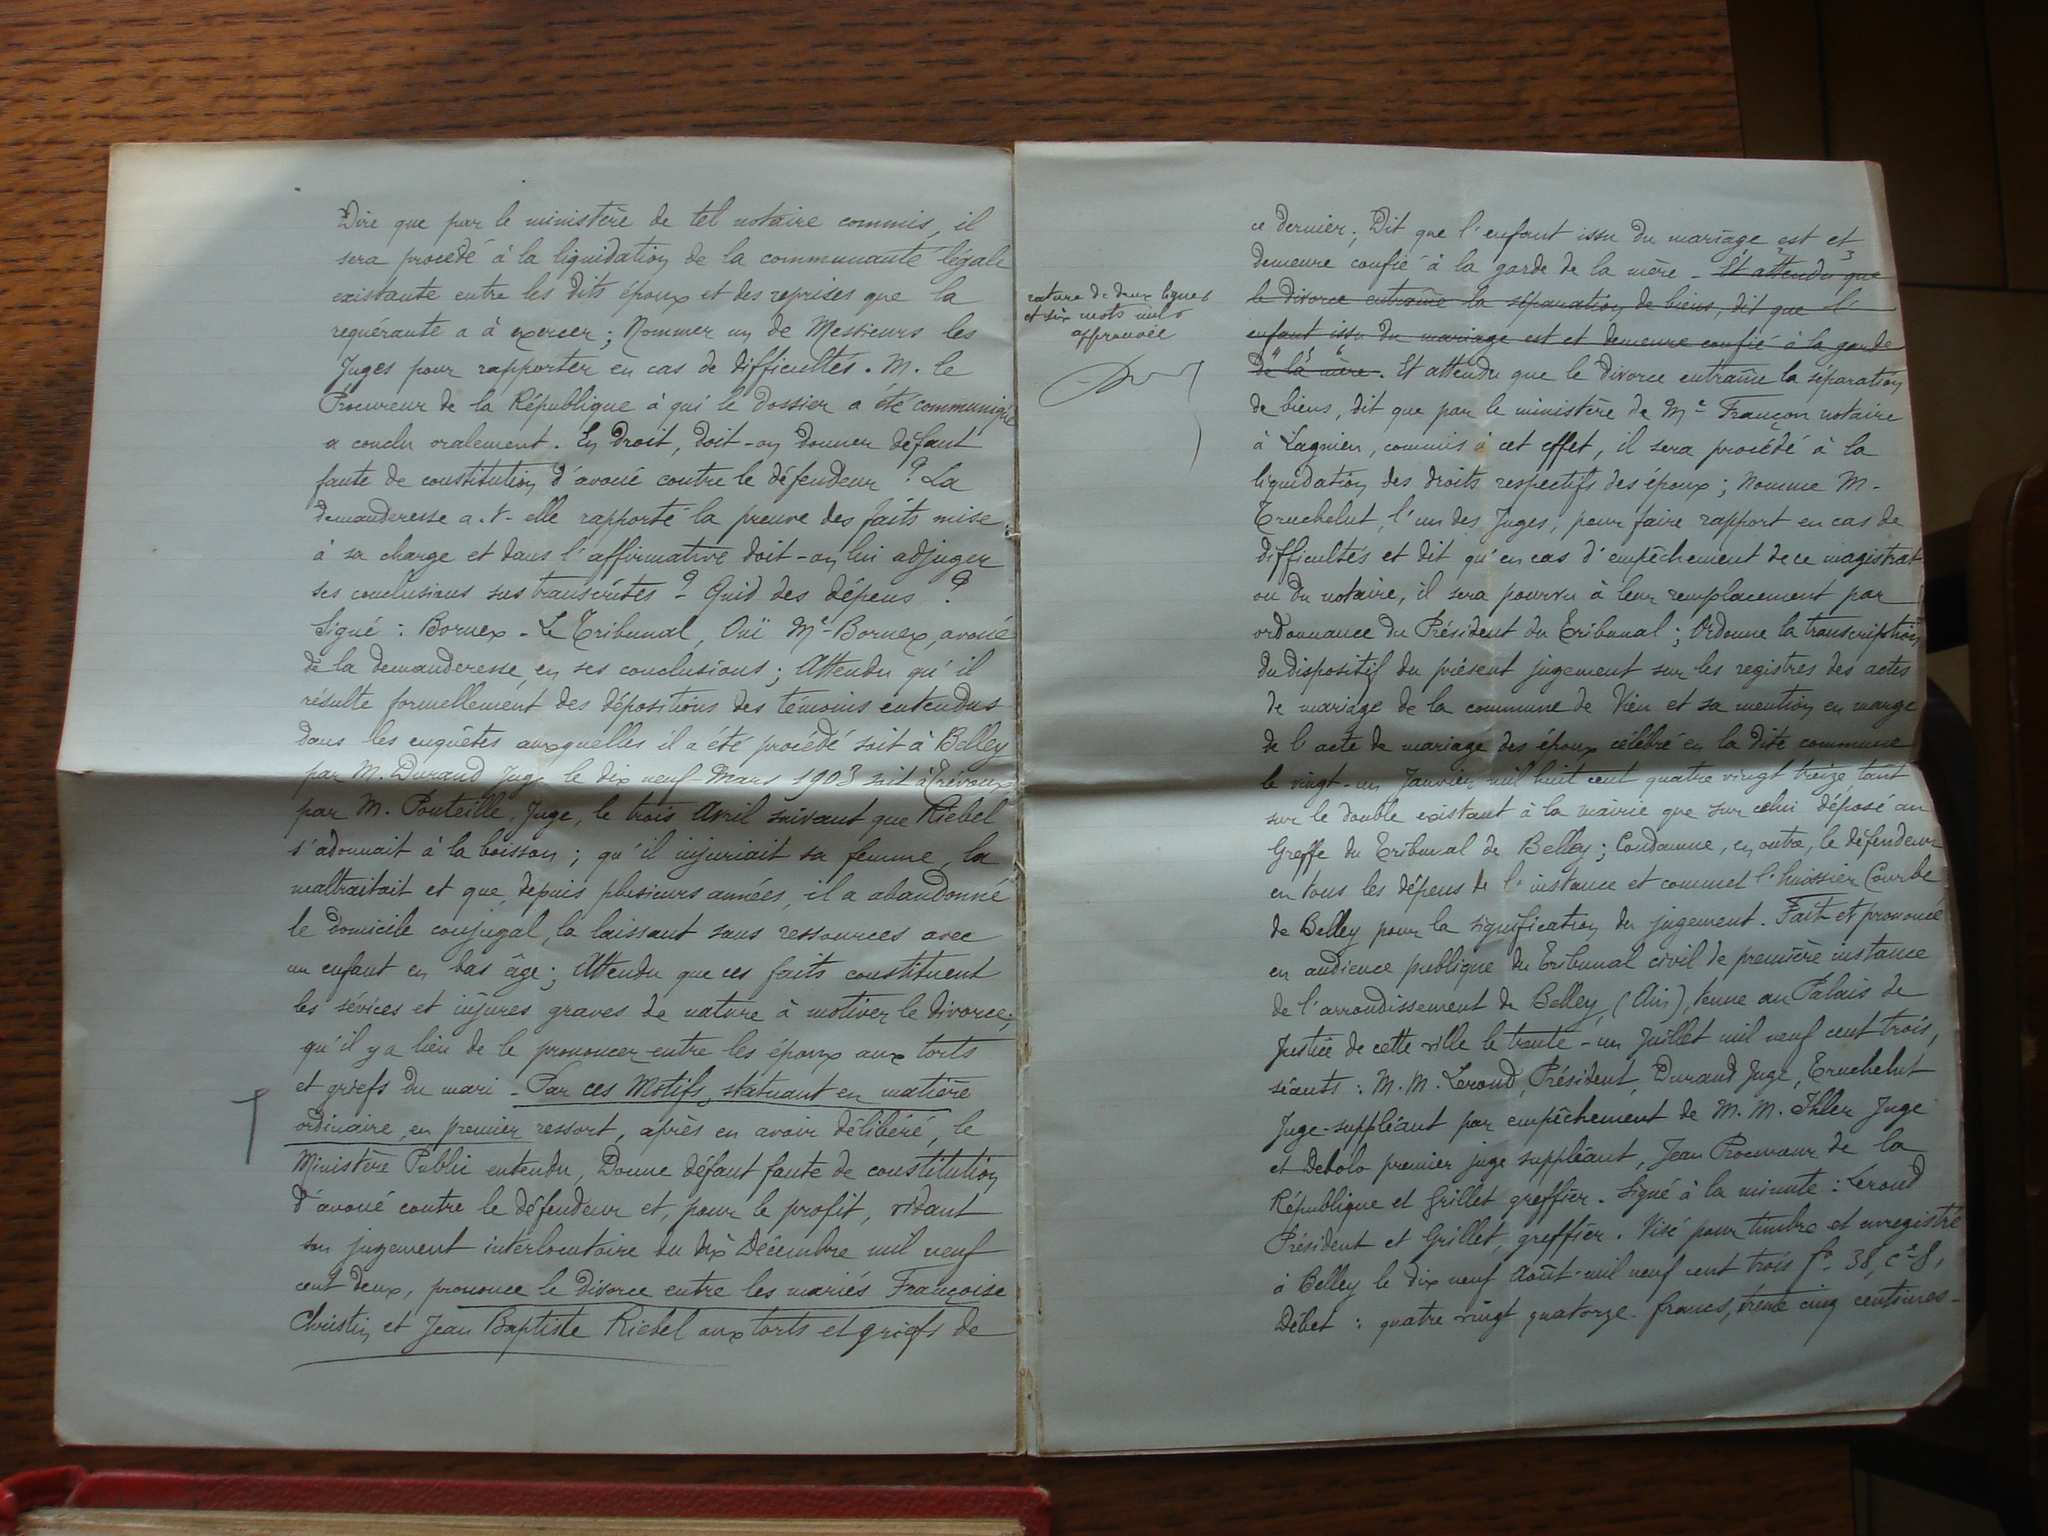 Dire que par le ministère de tel notaire commis, il
sera procédé à la liquidation de la communauté légale
existante entre les dits époux et des reprises que la
requérante a à exercer ; Nommer un de Messieurs les
Juges pour rapporter en cas de difficultés. M. le
Procureur de la République à qui le dossier a été communiqué
a conclu oralement. En droit, doit-on donner défaut
faute de constitution d'avoué contre le défendeur ? La
demanderesse a-t-elle rapporté la preuve des faits mise
à sa charge et dans l'affirmative doit-on lui adjuger
ses conclusions sus transcrites ? Quid des dépens ?
Signé : Bornex - Le Tribunal, Ouï Me Bornex, avoué
de la demanderesse, en ses conclusions ; Attendu qu'il
résulte formellement des dépositions des témoins entendus
dans les enquêtes auxquelles il a été procédé soit à Belley
par M. Durand Juge le dix neuf Mars 1903 soit à Trévoux
par M. Ponteille, Juge, le trois Avril suivant que Riebel
s'adonnait à la boisson ; qu'il injuriait sa femme, la
maltraitait et que, depuis plusieurs années, il a abandonné
le domicile conjugal, la laissant sans ressources avec
un enfant en bas âge ; Attendu que ces faits constituent
les sévices et injures graves de nature à motiver le divorce ;
qu'il y a lieu de le prononcer entre les époux aux torts
et griefs du mari - Par ces Motifs, statuant en matière
ordinaire, en premier ressort, après en avoir délibéré, le
Ministère Public entendu, Donne défaut faute de constitution
d'avoué contre le défendeur et, pour le profit, vidant
son jugement interlocutoire du dix Décembre mil neuf
cent deux, prononce le divorce entre les mariés Françoise
Christin et Jean Baptiste Riebel aux torts et griefs de
rature de deux lignes
et six mots nuls
approuvée
ce dernier ; Dit que l'enfant issu du mariage est et
demeure confié à la garde de la mère - Et attendu que
le divorce entraîne la séparation de biens, dit que l'
enfant issu du mariage est et demeure confié à la garde
de la mère. Et attendu que le divorce entraîne la séparation
de biens, dit que par le ministère de Me Françon notaire
à Lagnieu, commis à cet effet, il sera procédé à la
liquidation des droits respectifs des époux ; Nomme M.
Truchelut, l'un des Juges, pour faire rapport en cas de
difficultés et dit qu'en cas d'empêchement de ce magistrat
ou du notaire, il sera pourvu à leur remplacement par
ordonnance du Président du Tribunal ; Ordonne la transcription
du dispositif du présent jugement sur les registres des actes
de mariage de la commune de Vieu et sa mention en marge
de l'acte de mariage des époux célébré en la dite commune
le vingt-un Janvier mil huit cent quatre vingt treize, tant
sur le double existant à la mairie que sur celui déposé au
Greffe du Tribunal de Belley ; Condamne, en outre, le défendeur
en tous les dépens de l'instance et commet l'huissier Courbe
de Belley pour la signification du jugement. Fait et prononcé
en audience publique du Tribunal civil de première instance
de l'arrondissement de Belley, (Ain), tenue au Palais de
Justice de cette ville le trente-un Juillet mil neuf cent trois,
séants : M. M. Lerond, Président, Durand Juge, Truchelut
Juge-suppléant par empêchement de M. M. Ihler Juge
et Debolo premier juge suppléant, Jean Procureur de la
République et Grillet greffier. Signé à la minute : Lerond
Président et Grillet, greffier. Visé pour timbre et enregistré
à Belley le dix neuf Août mil neuf cent trois fo 38, ce 8,
Débet : quatre vingt quatorze francs, trente cinq centimes -